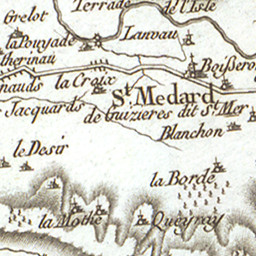 Terrade
de l'Isle
Grelot
la Pouyade
Lanvau
therinau
la Croix
Boisseron
nauds
St. Medard
Jacquards
de Guizieres dit St. Mer
Blanchon
le Desir
la Borde
la Mothe
Quéyray